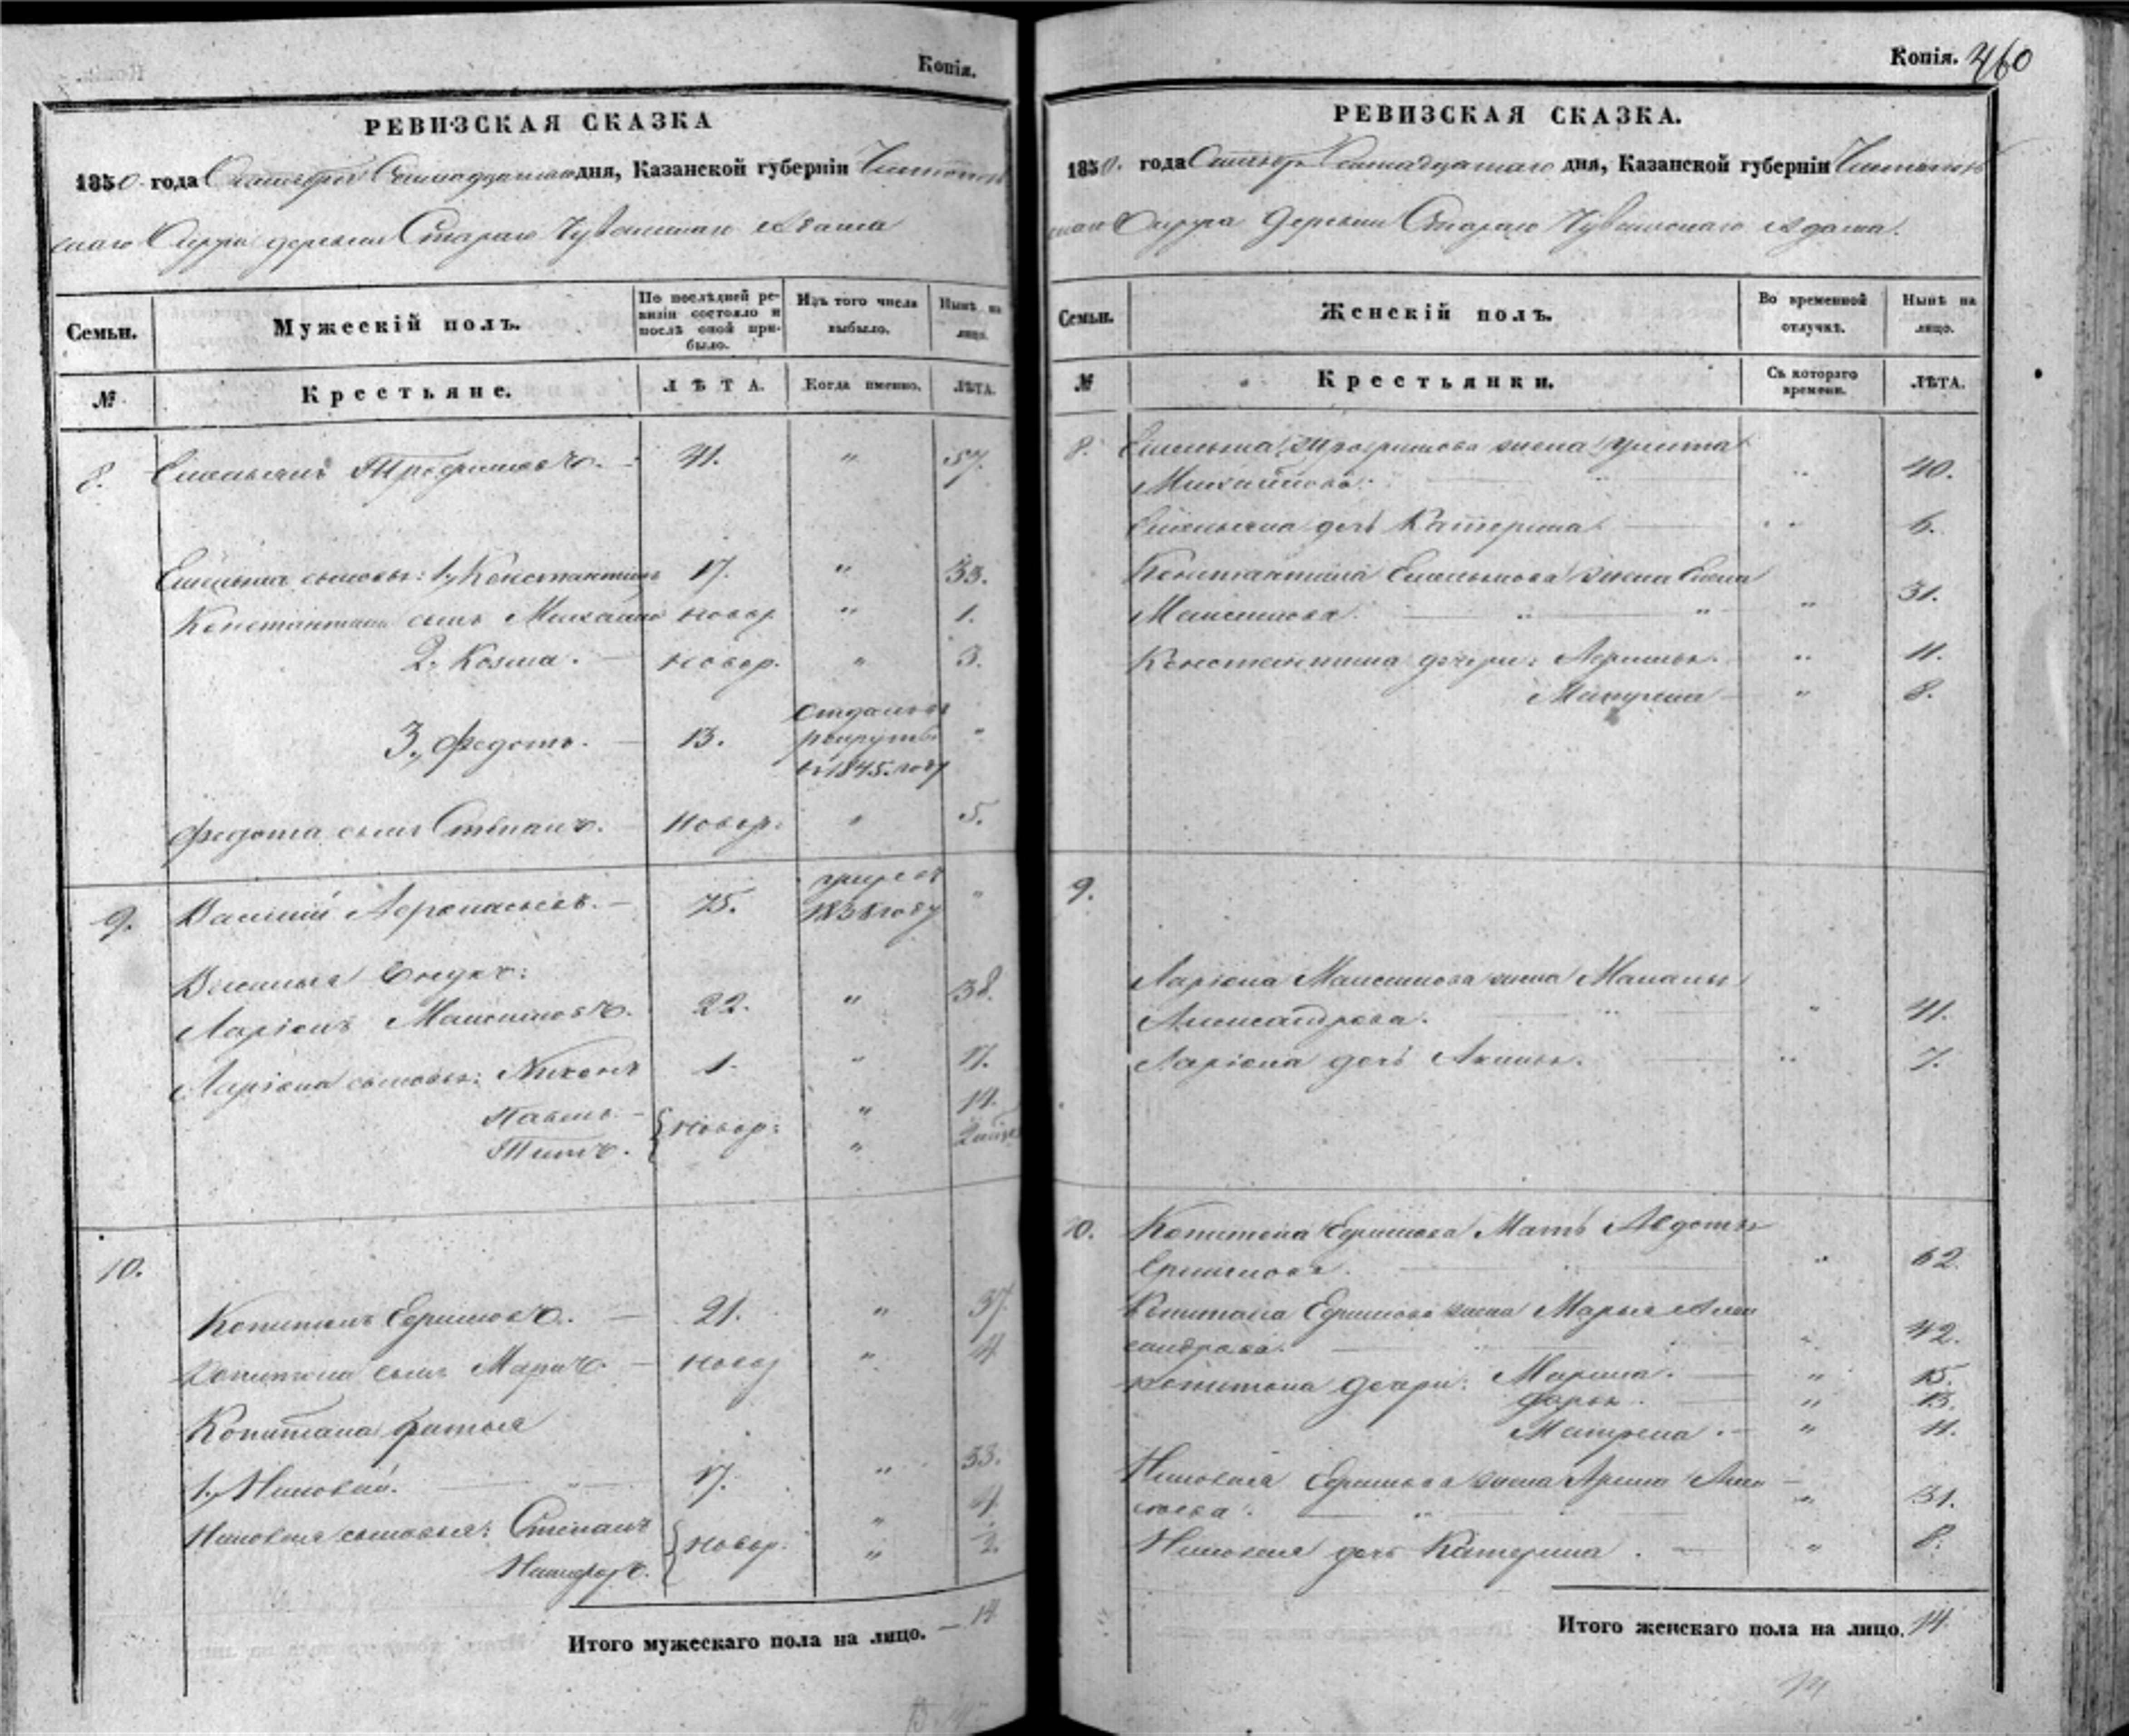 Копія.
РЕВИЗСКАЯ СКАЗКА
1850. года Октября Семнадцатаго дня, Казанской губерніи Чистополь
скаго Округа деревни Стараго Чувашскаго Адама
Семьи.
Мужескій полъ.
По послѣдней ре-
визіи состояло и
послѣ оной при-
было.
Изъ того числа
выбыло.
Нынѣ на
лицо.
№
Крестьяне.
ЛѢТА.
Когда именно.
ЛѢТА.
8. Емельянъ Трофимовъ. 41. " 57.
Емельяна сыновья: 1, Константинъ 17. " 33.
Константина сынъ Михайло новор. " 1.
2, Козма. новор. " 3.
3., Федотъ. 13. Отданъ въ рекруты въ 1845. году "
Федота сынъ Степанъ. новор: " 5.
9. Василій Афонасьевъ. 75. умре въ 1838 году "
Василья внукъ:
Ларіонъ Максимовъ. 22. " 38.
Ларіона сыновья: Никонъ 1. " 17.
Павелъ. новор: " 14.
Титъ. "
10.
Копитонъ Ефимовъ. 21. " 37.
Копитона сынъ Маркъ. новор " 4
Копитона братья
1, Никовай. 17. " 33.
сыновья: Степанъ новор. " 4.
" 2.
Итого мужескаго пола на лицо. 14
Копія. 460
РЕВИЗСКАЯ СКАЗКА.
1850. года Октября Семнадцатаго дня, Казанской губерніи Чистополь
скаго Округа Деревни Стараго Чувашскаго Адама.
Семьи.
Женскій полъ.
Во временной
отлучкѣ.
Нынѣ на
лицо.
№
Крестьянки.
Съ котораго
времени.
ЛѢТА.
8. Емельяна Трофимова жена
Михайлова. " 40.
Емельяна дочь Катерина " 6.
Константина Емельянова жена Елена
Максимова. " 31.
Константина дочери: " 11.
Матрена " 8.
9.
Ларіона Максимова жена
Александрова. " 41.
Ларіона дочь " 7.
10. Копитона Ефимова Мать Авдотья
" 62
Копитона Ефимова жена Марья Алек
сандрова. " 42.
Копитона дочери: Марина. " 15.
Дарья. " 13.
Матрена. " 11.
Ефимова жена Арина
" 31.
дочь Катерина. " 8.
Итого женскаго пола на лицо. 14